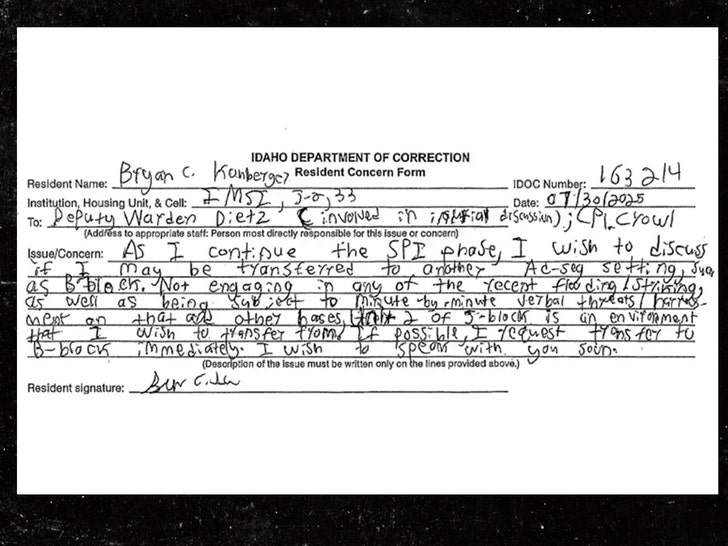 IDAHO DEPARTMENT OF CORRECTION
Resident Concern Form
Resident Name: Bryan C. Kohberger IDOC Number: 163214
Institution, Housing Unit, & Cell: IMSI, J-2, 33 Date: 07/30/2025
To: Deputy Warden Dietz (involved in initial discussion); CPL Crowl
(Address to appropriate staff: Person most directly responsible for this issue or concern)
Issue/Concern: As I continue the SPI phase, I wish to discuss
if I may be transferred to another Ad-seg setting, such
as B-block. Not engaging in any of the recent flooding/striking,
as well as being subject to minute-by-minute verbal threats/harass-
ment on that and other bases, Unit 2 of J-block is an environment
that I wish to transfer from. If possible, I request transfer to
B-block immediately. I wish to speak with you soon.
(Description of the issue must be written only on the lines provided above.)
Resident signature: